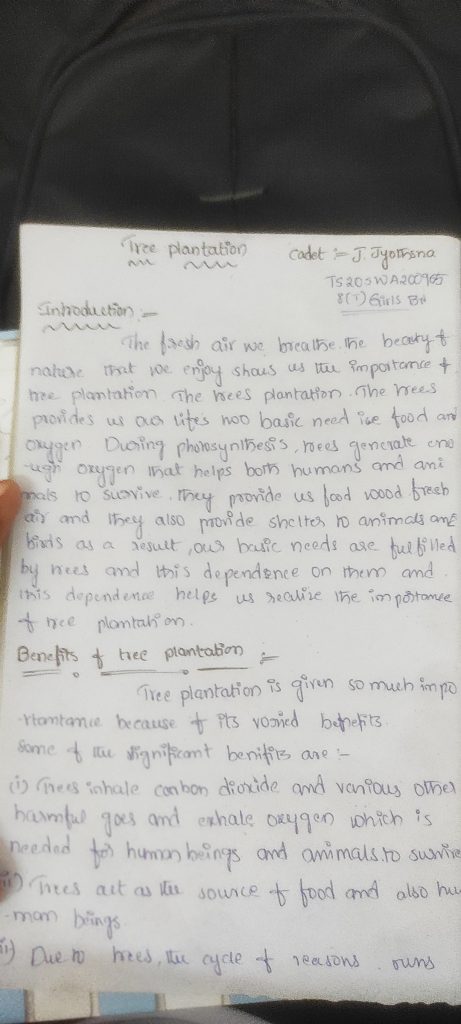 Tree plantation
Cadet :- J. Jyothsna
TS20SWA200905
8(T) Girls Bn
Introduction :-
The fresh air we breathe. the beauty of
nature that we enjoy shows us the importance of
tree plantation. The trees plantation. The trees
provides us our life's two basic need ise food and
oxygen. During photosynthesis, trees generate eno
-ugh oxygen that helps both humans and ani
mals to survive. They provide us food wood fresh
air and they also provide shelter to animals and
birds as a result, our basic needs are fulfilled
by trees and this dependence on them and.
this dependence helps us realize the importance
of tree plantation.
Benefits of tree plantation :-
Tree plantation is given so much impo
-rtamtance because of its varied benefits.
Some of the significant benifits are :-
(i) Trees inhale carbon dioxide and various other
harmful gases and exhale oxygen which is
needed for human beings and animals to survive
ii) Trees act as the source of food and also hu
-man beings.
ii) Due to trees, the cycle of reasons. runs